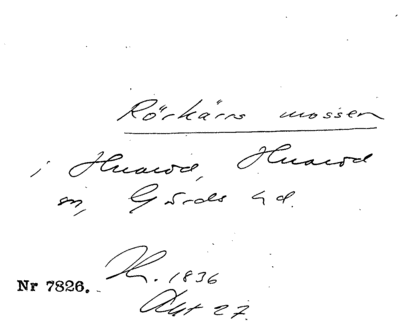 Rörkärrs mossen
i Huaröd, Huaröd
sn, Gärds hd.
Kr. 1836
Nr 7826.
Akt 27.